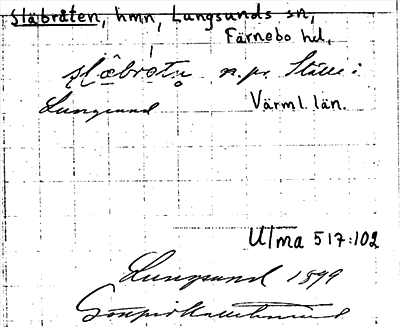 Släbråten, hmn, Lungsunds sn,
Färnebo hd,
n. pr. Ställe i
Lungsund
Värml. län.
Ulma 517:102
Lungsund 1899